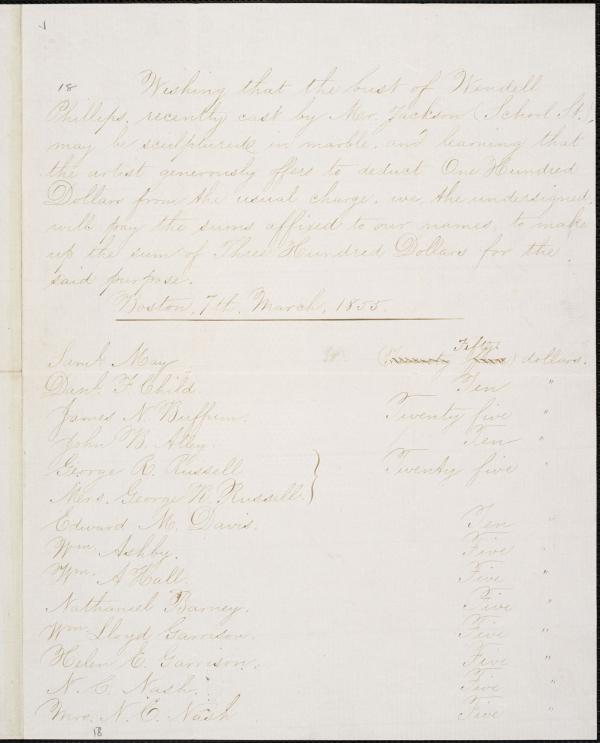 18 Wishing that the bust of Wendell
Phillips, recently cast by Mr. Jackson (School St.),
may be sculptured in marble, and learning that
the artist generously offers to deduct One Hundred
Dollars from the usual charge, we, the undersigned,
will pay the sums affixed to our names, to make
up the sum of Three Hundred Dollars for the
said purpose.
Boston, 7th March, 1855.
Fifty
Saml. May (Twenty five) dollars.
Danl. F. Child Ten "
James N. Buffum. Twenty five "
John B. Alley. Ten "
George R. Russell } Twenty five "
Mrs. George R. Russell.
Edward M. Davis. Ten "
Wm. Ashby. Five "
Wm. A Hall. Five "
Nathaniel Barney. Five "
Wm Lloyd Garrison. Five "
Helen E. Garrison. Five "
N. C. Nash. Five "
Mrs. N. C. Nash Five
18